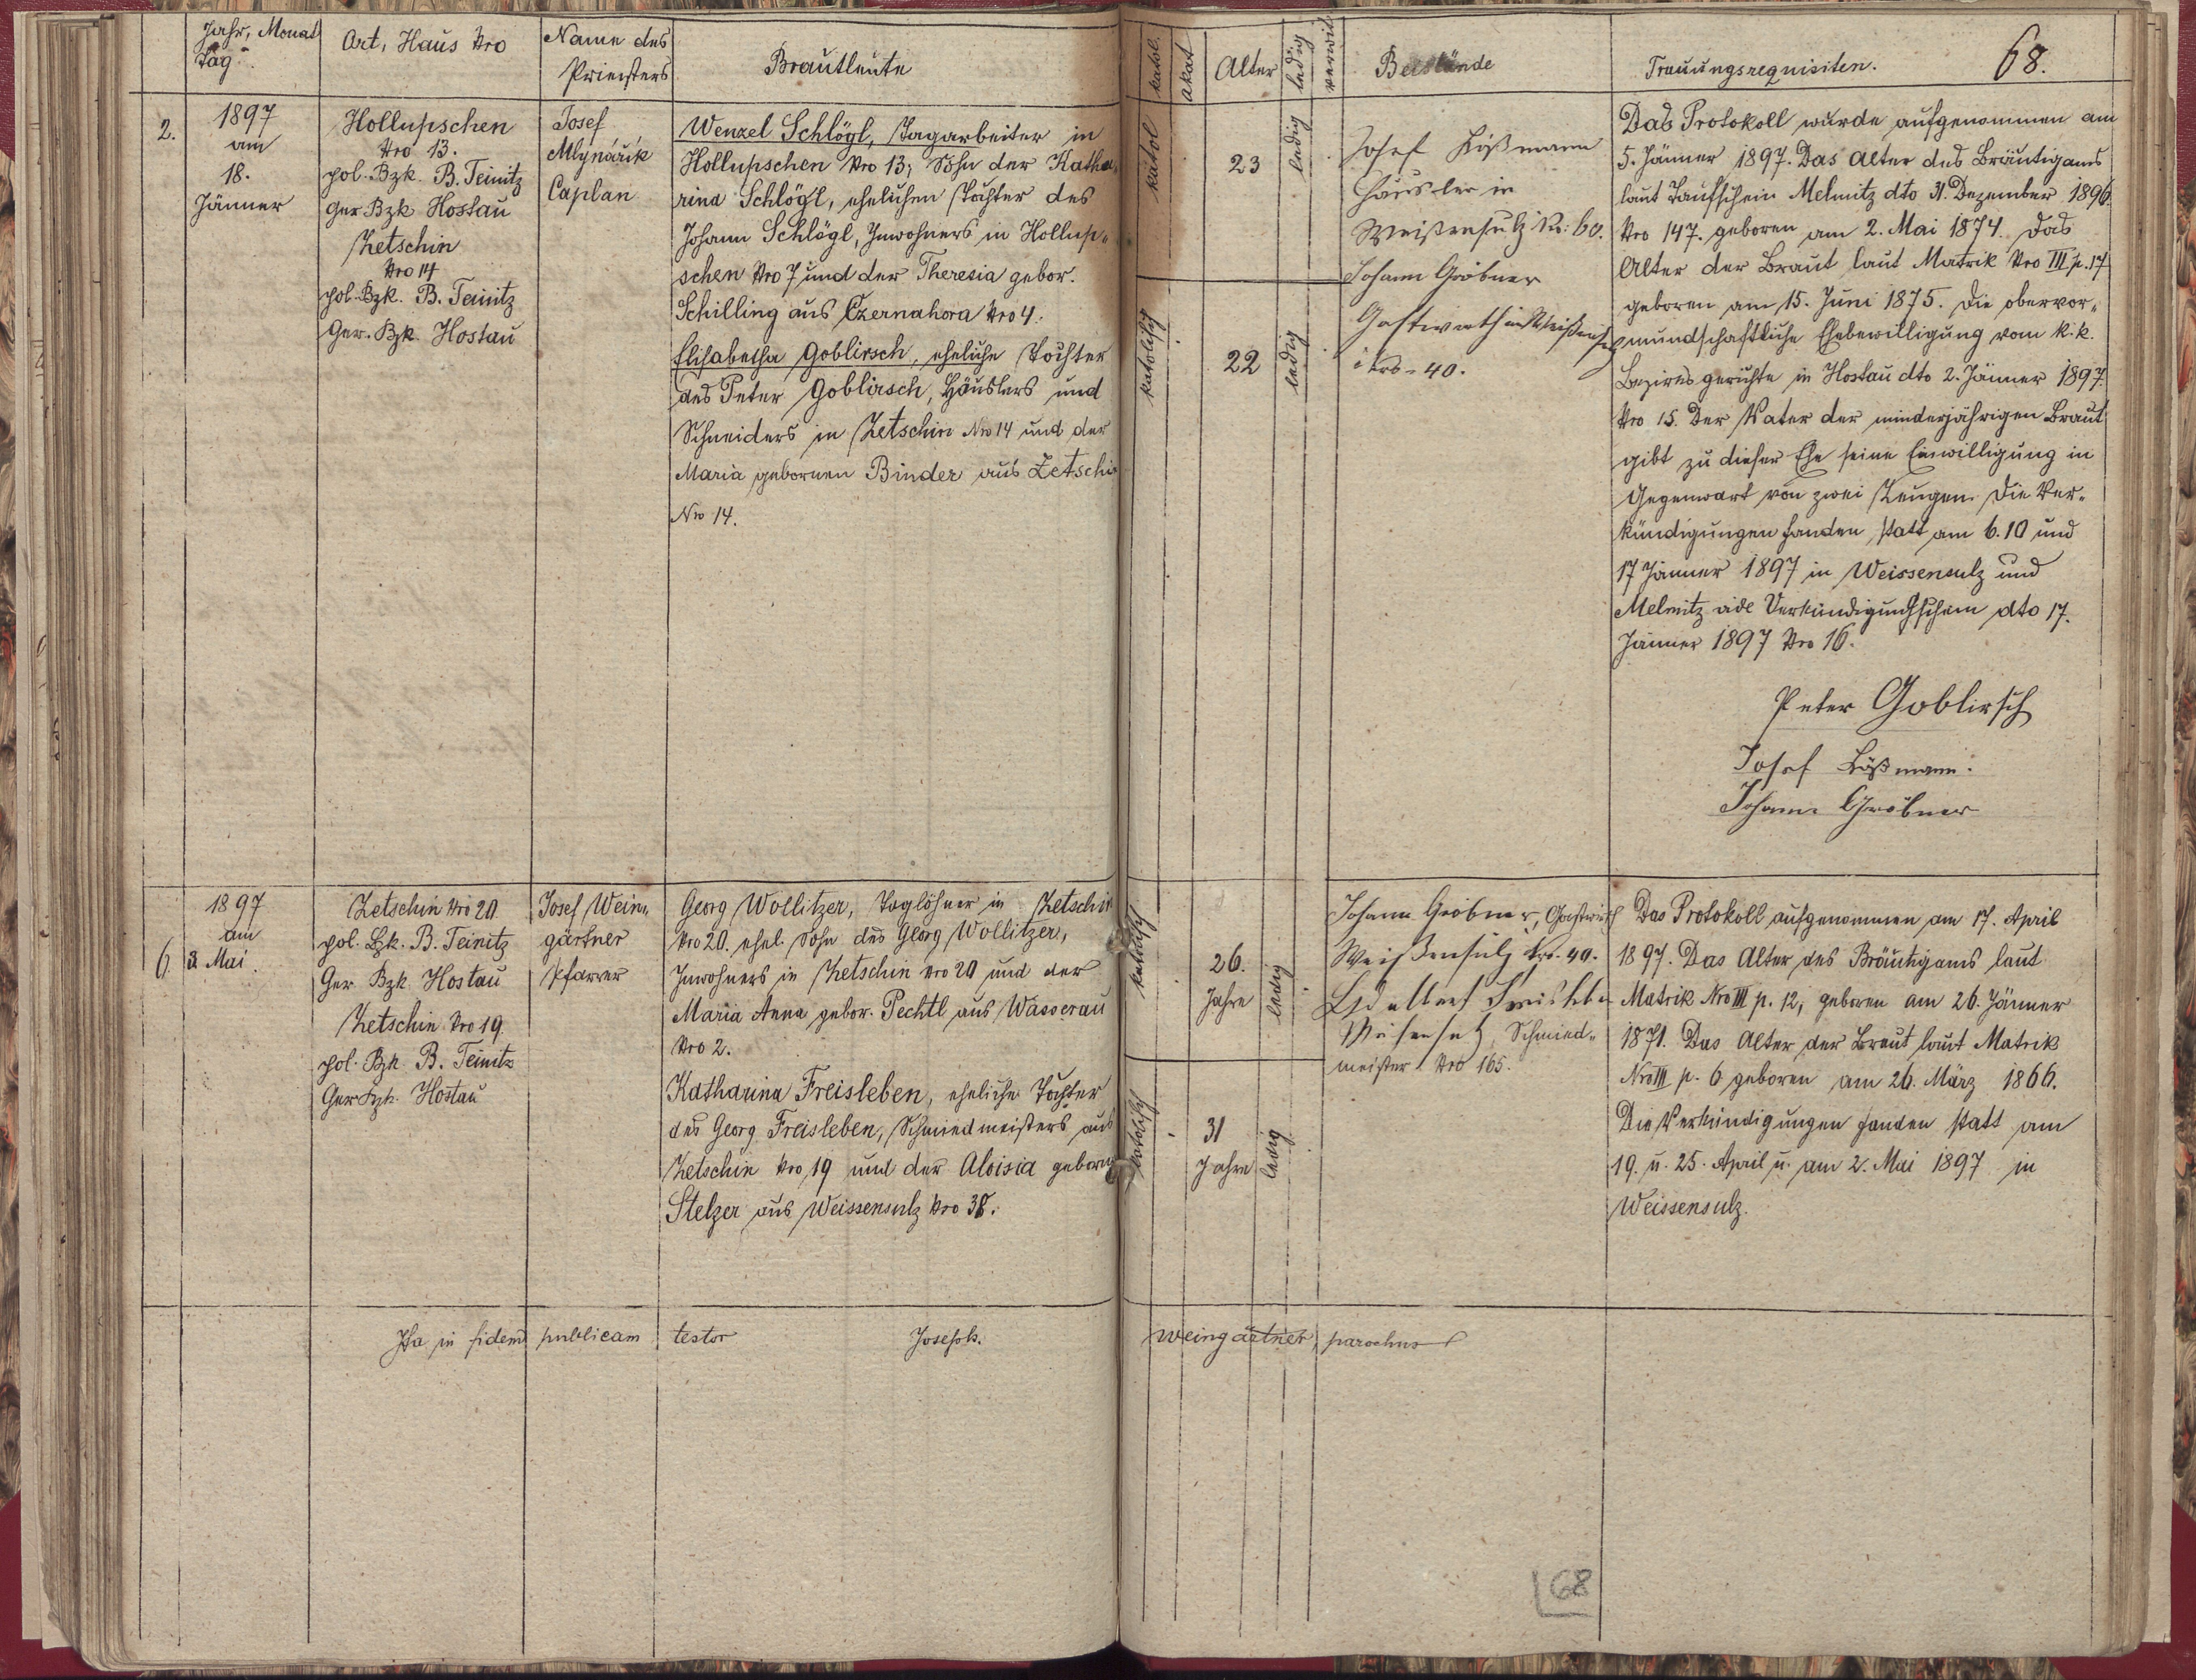 Jahr, Monat
Tag
Ort, Haus Nro
Name des
Priesters
Brautleute
katol.
akat
Alter
ledig
verwit
Beistände
Trauungsrequisiten.
68.
2.
1897
am
18.
Jänner
Hollupschen
Nro 13.
pol. Bzk. B. Teinitz
Ger Bzk Hostau
Zetschin
Nro 14
pol. Bzk. B. Teinitz
Ger. Bzk. Hostau
Josef
Mlynářik
Caplan
Wenzel Schlögl, Tagarbeiter in
Hollupschen Nro 13, Sohn der Katha-
rina Schlögl, ehelichen Tochter des
Johann Schlögl, Inwohners in Hollup-
schen Nro 7 und der Theresia gebor.
Schilling aus Czernahora Nro 4.
Elisabetha Goblirsch, eheliche Tochter
des Peter Goblirsch, Häuslers und
Schneiders in Zetschin Nro 14 und der
Maria gebornen Binder aus Zetschin
Nro 14.
katol
23
ledig
katolisch
22
ledig
Josef Lößmann
Häusler in
Weißensulz Nr: 60.
Johann Gröbner
Gastwirth in Weißensulz
Nro - 40.
Das Protokoll wurde aufgenommen am
5. Jänner 1897. Das Alter des Bräutigams
laut Taufschein Melmitz dto 31. Dezember 1896.
Nro 147. geboren am 2. Mai 1874. Das
Alter der Braut laut Matrik Nro III p. 17
geboren am 15. Juni 1875. Die obervor-
mundschaftliche Ehebewilligung vom k. k.
Bezirksgerichte in Hostau dto 2. Jänner 1897.
Nro 15. Der Vater der minderjährigen Braut
gibt zu dieser Ehe seine Einwilligung in
Gegenwart von zwei Zeugen. Die Ver-
kündigungen fanden statt am 6. 10 und
17 Jänner 1897 in Weissensulz und
Melmitz vide Verkündigungsschein dto 17.
Jänner 1897 Nro 16.
Peter Goblirsch
Josef Lößmann.
Johann Gröbner
6.
1897
am
3 Mai.
Zetschin Nro 20.
pol. Bzk. B. Teinitz
Ger Bzk Hostau
Zetschin Nro 19.
pol. Bzk. B. Teinitz
Ger Bzk. Hostau
Josef Wein-
gärtner
Pfarrer
Georg Wollitzer, Taglöhner in Zetschin
Nro 20. ehel. Sohn des Georg Wollitzer,
Inwohners in Zetschin Nro 20 und der
Maria Anna gebor. Pechtl aus Wasserau
Nro 2.
Katharina Freisleben, eheliche Tochter
des Georg Freisleben, Schmiedmeisters aus
Zetschin Nro 19 und der Aloisia geborne
Stelzer aus Weissensulz Nro 38.
katolisch
26.
Jahre
ledig
katolisch
31
Jahre
ledig
Johann Gröbner, Gastwirth
Weißensulz Nro. 40.
Schmied-
meister Nro 165.
Das Protokoll aufgenommen am 17. April
1897. Das Alter des Bräutigams laut
Matrik Nro III p. 12, geboren am 26. Jänner
1871. Das Alter der Braut laut Matrik
Nro III p. 6 geboren am 26. März 1866.
Die Verkündigungen fanden statt am
19. u. 25. April u. am 2. Mai 1897 in
Weissensulz.
Ita in fidem publicam testor Joseph. Weingärtner, parochus
68